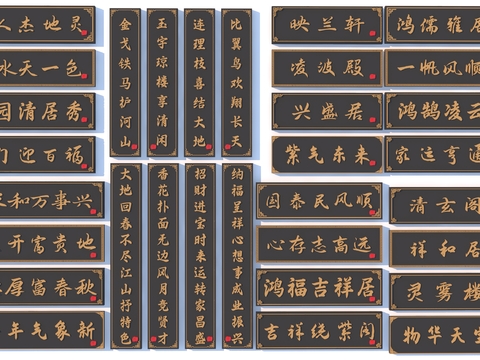 人杰地灵
水天一色
园清居秀
门迎百福
和万事兴
开富贵地
厚富春秋
年气象新
金戈铁马护河山
玉宇琼楼享清闲
连理枝喜结大地
比翼鸟欢翔长天
大地回春不尽江山抒特色
香花扑面无边风月竞贤才
招财进宝时来运转家昌盛
纳福呈祥心想事成业振兴
映兰轩
凌波殿
兴盛居
紫气东来
国泰民风顺
心存志高远
鸿福吉祥居
吉祥绕紫阁
鸿儒雅居
一帆风顺
鸿鹄凌云
家运亨通
清玄阁
祥和居
灵雾楼
物华天